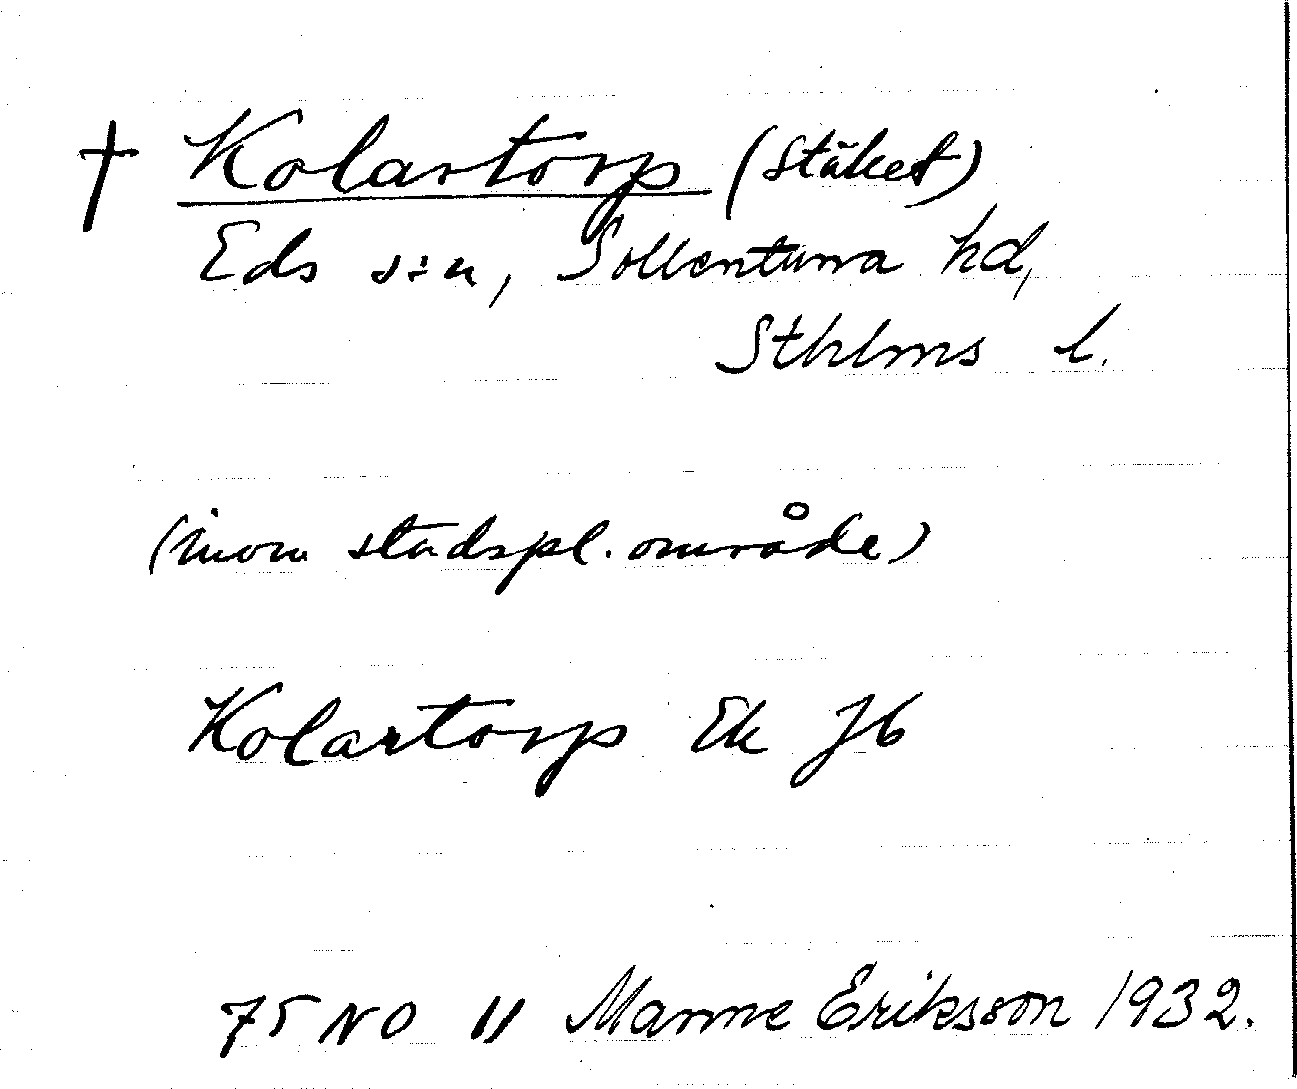 † Kolartorp (Stäket)
Eds s:n, Sollentuna hd,
Sthlms l.
(inom stadspl. område)
Kolartorp Ek Jb
75 NO 11 Manne Eriksson 1932.